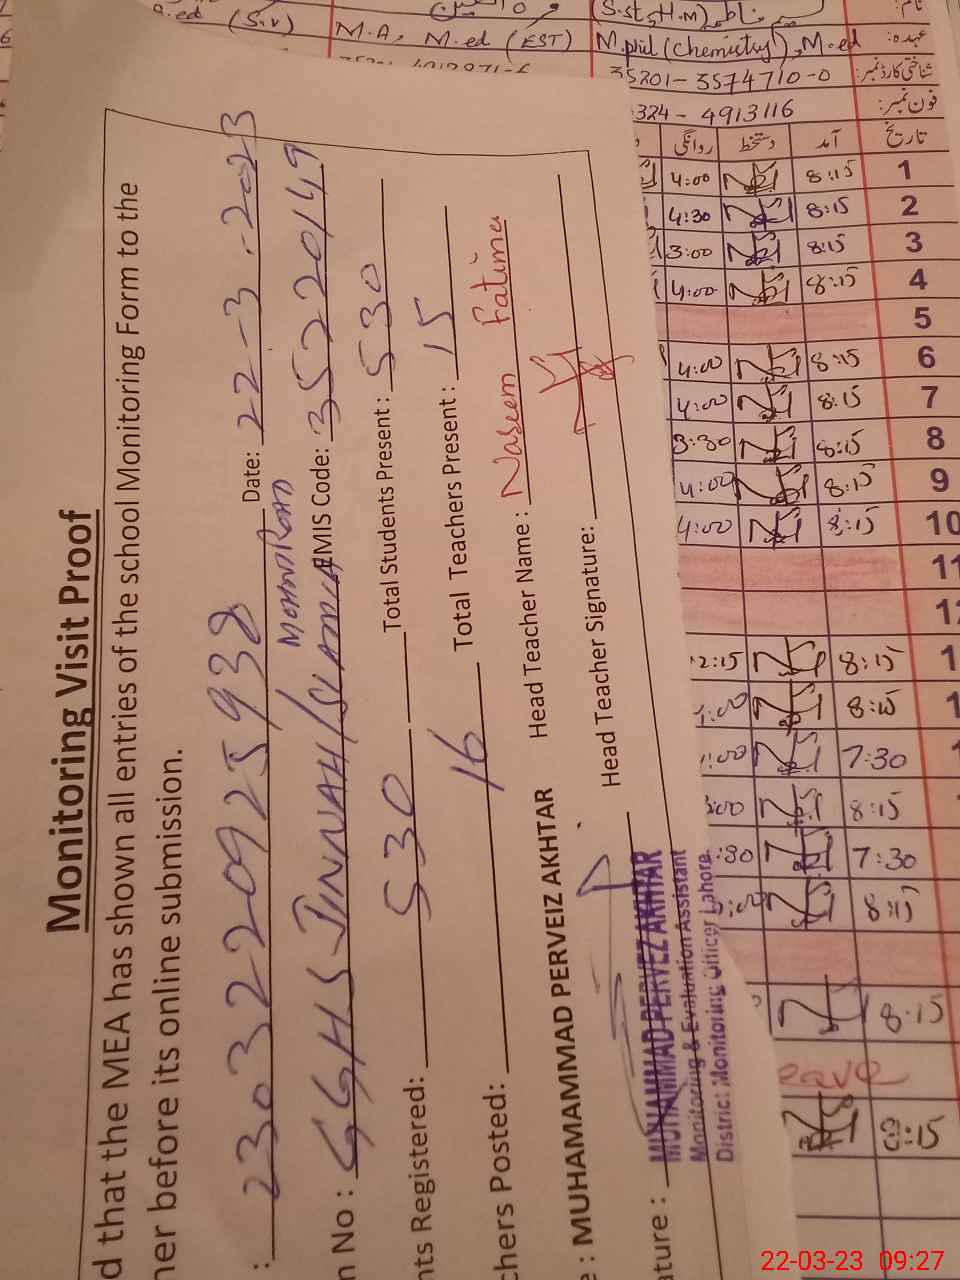 Monitoring Visit Proof
d that the MEA has shown all entries of the school Monitoring Form to the
her before its online submission.
: 2303220925938 Date: 22-3-2023
n No : GGHS JINNAH/ISLAMIA MOHNI ROAD EMIS Code: 35220149
nts Registered: 530 Total Students Present: 530
chers Posted: 16 Total Teachers Present: 15
e : MUHAMAMMAD PERVEIZ AKHTAR Head Teacher Name : Naseem Fatima
ature : Head Teacher Signature:
MUHAMMAD PERVEZ AKHTAR
Monitoring & Evaluation Assistant
District Monitoring Officer Lahore.
نام:
(S.st, H.m)
عہدہ:
A.ed (S.v) M.A, M.ed (EST) M.phil (Chemistry), M.ed
شناختی کارڈ نمبر:
35201-3574710-0
فون نمبر:
324-4913116
تاریخ آمد دستخط روانگی
1 8:15 4:00
2 8:15 4:30
3 8:15 3:00
4 8:15 4:00
5
6 8:15 4:00
7 8:15 4:00
8 8:15 3:30
9 8:15 4:00
10 8:15 4:00
11
12
1 8:15 2:15
1 8:15 :00
1 7:30 :00
8:15 3:00
7:30 :30
8:15 :00
8:15
eave
8:15
22-03-23 09:27